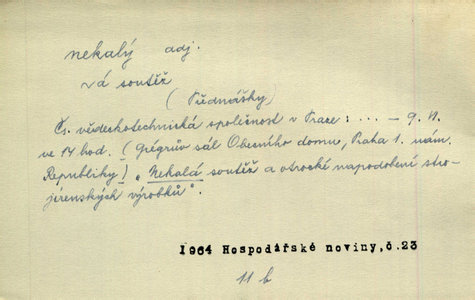 nekalý adj.
~á soutěž
(Přednášky)
Čs. vědeckotechnická společnost v Praze: ... – 9. VI.
ve 14 hod. (Grégrův sál Obecního domu, Praha 1. nám.
Republiky) „Nekalá soutěž a otrocké napodobení stro-
jírenských výrobků".
1964 Hospodářské noviny, č. 23
11 b